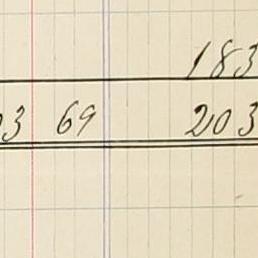 183
03 69 203